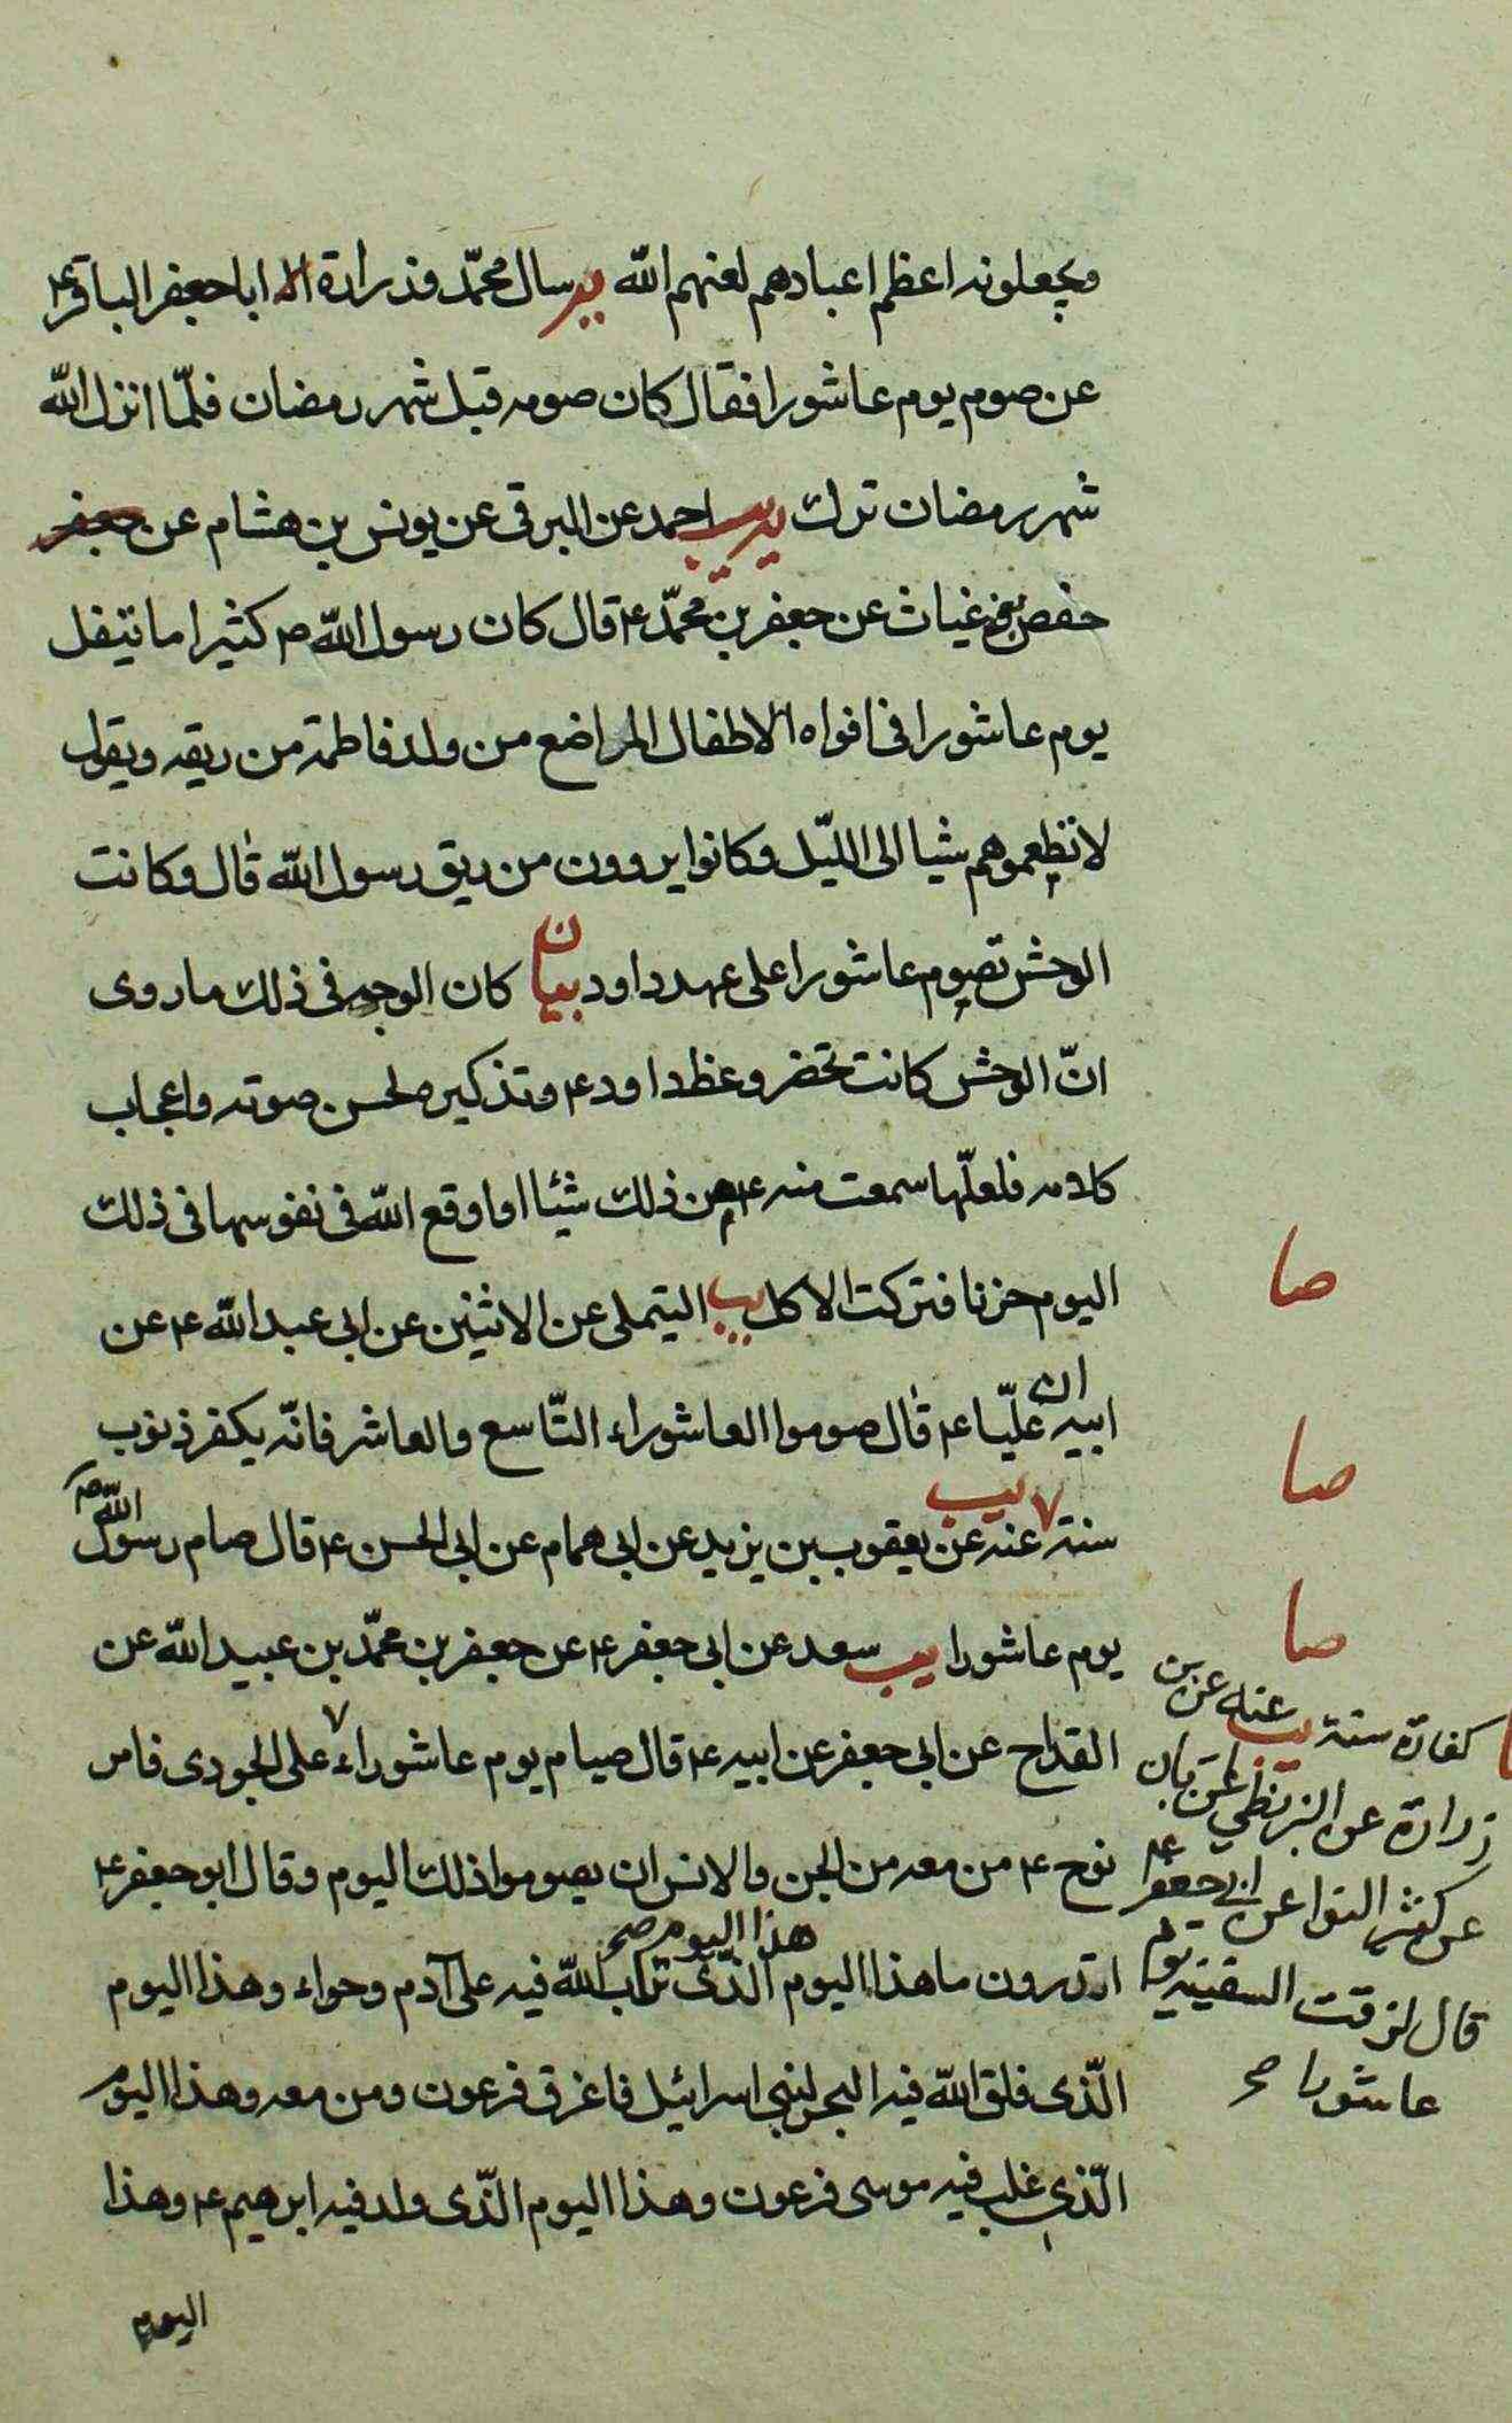 ويجعلونه اعظم اعيادهم لعنهم الله يه سال محمّد وزرارة ابا جعفر الباقر ع
عن صوم يوم عاشورا فقال كان صومه قبل شهر رمضان فلمّا انزل الله
شهر رمضان ترك يب احمد عن البرقى عن يونس بن هشام عن جعفر
حفص بن غياث عن جعفر بن محمّد ع قال كان رسول الله ص كثيرا ما يتفل
يوم عاشورا فى افواه الاطفال المراضع من ولد فاطمة من ريقه ويقول
لا تطعموهم شيا الى الليّل وكانوا يروون من ريق رسول الله قال وكانت
الوحش تصوم عاشورا على عهد داود بيان كان الوجه فى ذلك ما روى
انّ الوحش كانت تحضر وعظ داود ع وتذكيره لحسن صوته واعجاب
كلامه فلعلّها سمعت منه ع من ذلك شيئا او اوقع الله فى نفوسها فى ذلك
اليوم حزنا فتركت الاكل يب التيملى عن الاثنين عن ابى عبد الله ع عن
ابيه ان عليّا ع قال صوموا العاشوراء التّاسع والعاشر فانّه يكفر ذنوب
سنة يب عنه عن يعقوب بن يزيد عن ابى همام عن ابى الحسن ع قال صام رسول الله ص
يوم عاشورا يب سعد عن ابى جعفر ع عن جعفر بن محمّد بن عبيد الله عن
القداح عن ابى جعفر عن ابيه ع قال صيام يوم عاشوراء على الجودى فامر
نوح ع من معه من الجن والانس ان يصوموا ذلك اليوم وقال ابو جعفر ع
اتدرون ما هذا اليوم هذا اليوم صح الذّى تاب الله فيه على آدم وحواء وهذا اليوم
الّذى فلق الله فيه البحر لبنى اسرائيل فاغرق فرعون ومن معه وهذا اليوم
الّذى غلب فيه موسى فرعون وهذا اليوم الذّى ولد فيه ابرهيم ع وهذا
اليوم
صا
صا
صا
كفارة سنة يب عنه عن بن
زرارة عن البزنطي عن ابان
عن كثير النوا عن ابى جعفر ع
قال لزقت السفينة يوم
عاشورا صح